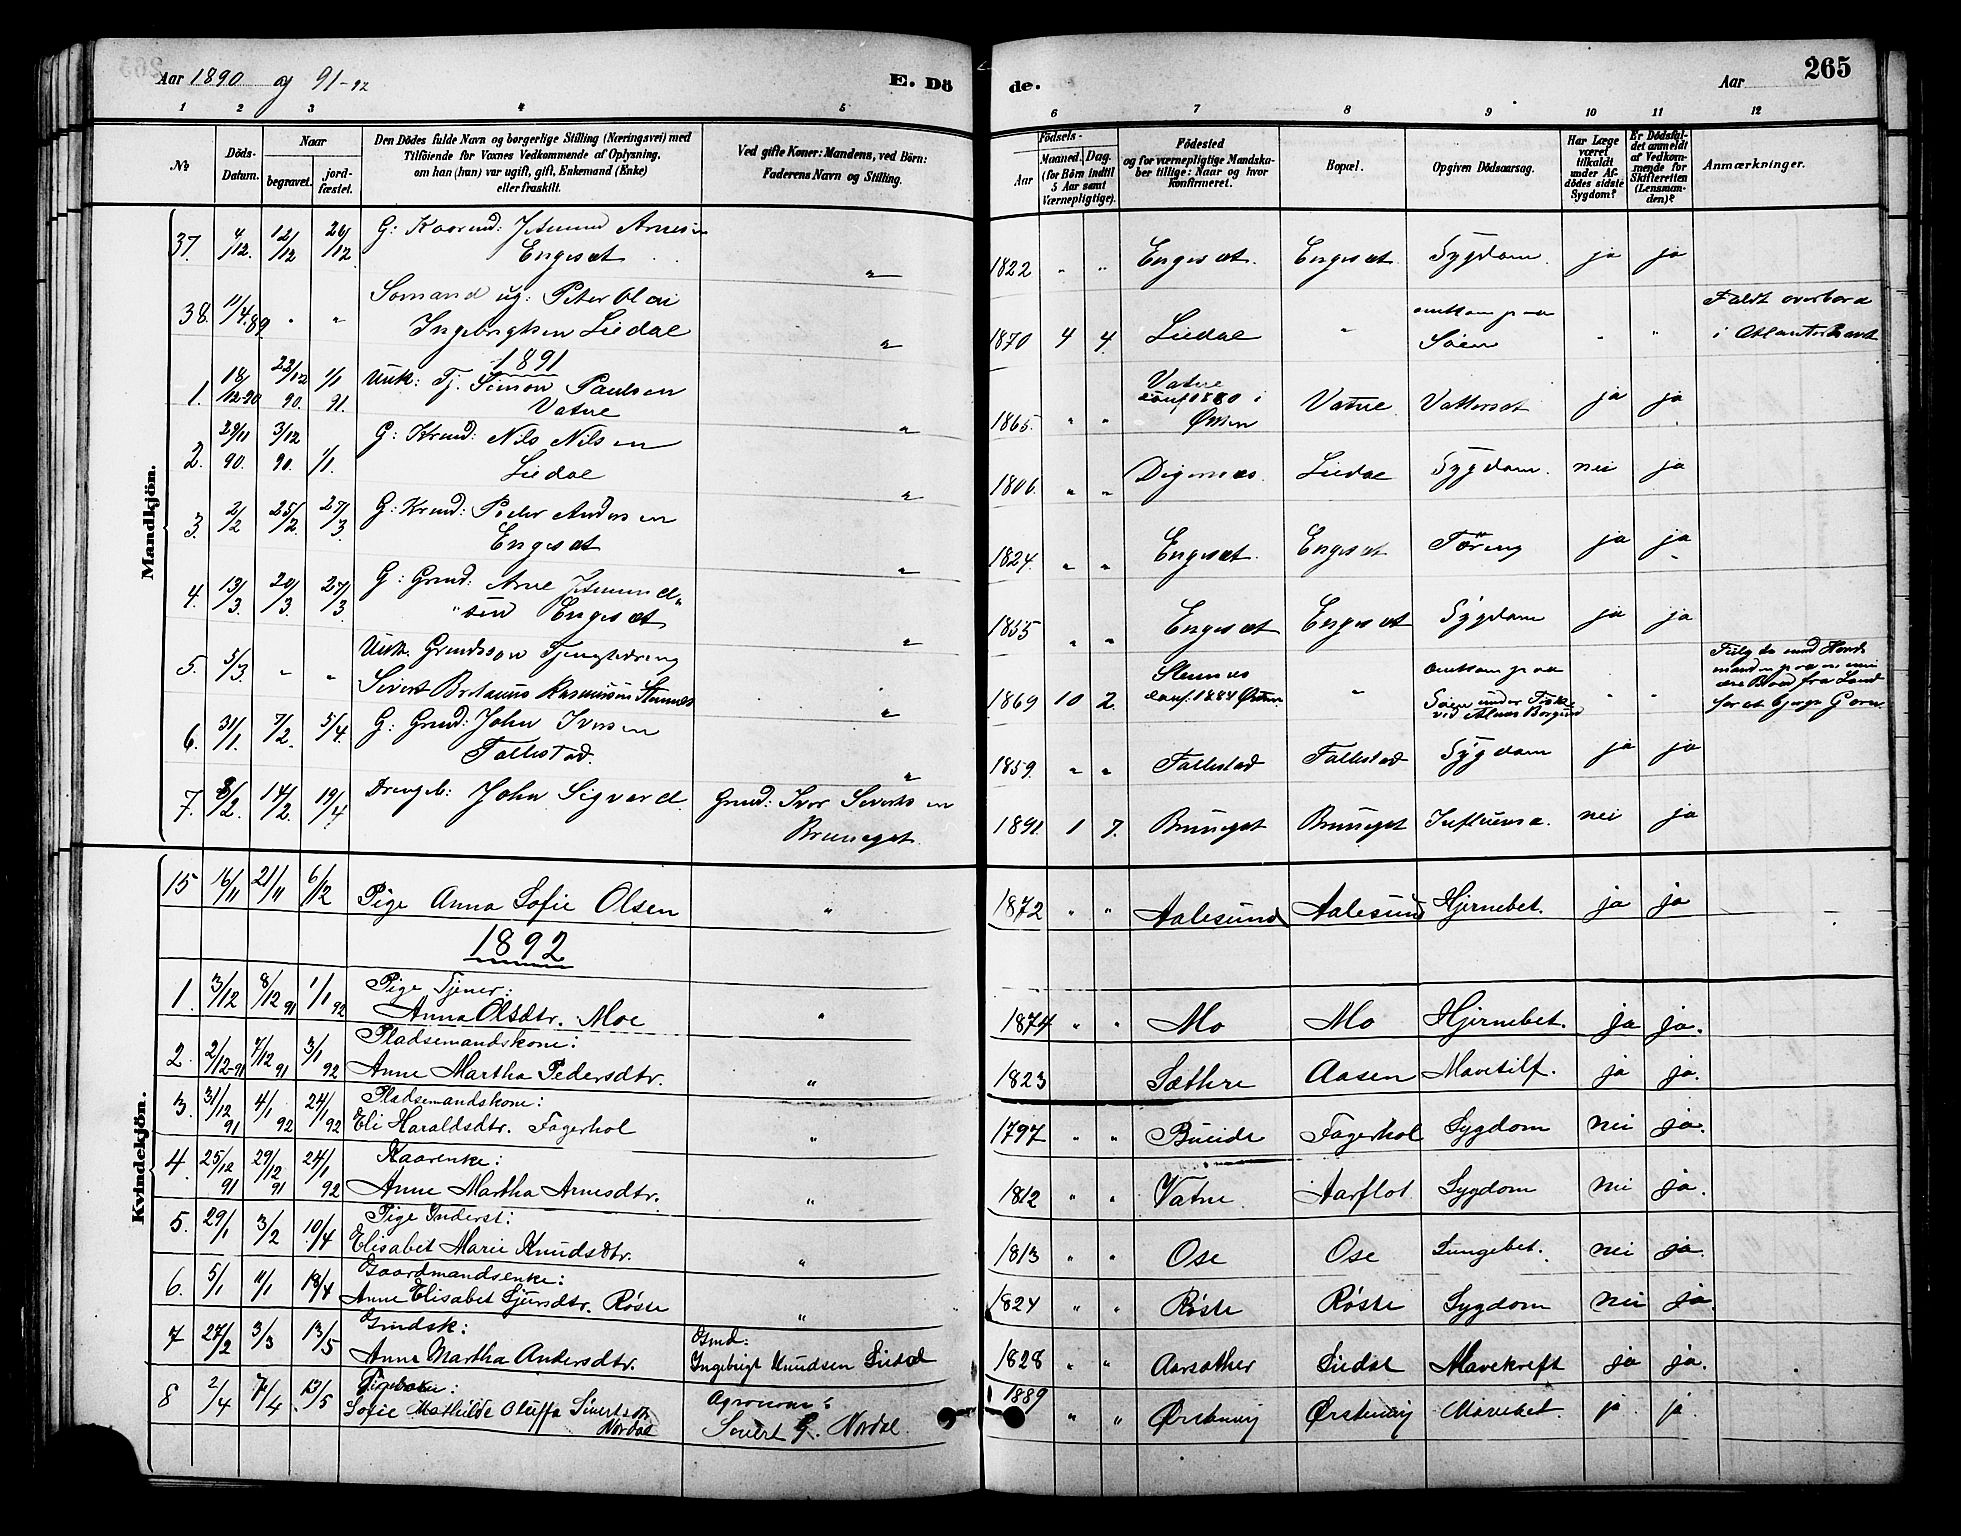 Aar 1890 og 91-92
E. Dö
de.
Aar
265
1 2 3 4 5
6 7 8 9 10 11 12
No
Döds-Datum.
Naar
begravet.
jord-fæstet.
Den Dödes fulde Navn og borgerlige Stilling (Næringsvei) med
Tilföiende for Voxnes Vedkommende af Oplysning,
om han (hun) var ugift, gift, Enkemand (Enke)
eller fraskilt.
Ved gifte Koner: Mandens, ved Börn:
Faderens Navn og Stilling.
Födsels-
Aar
Maaned. Dag.
(for Börn indtil
5 Aar samt
Værnepligtige).
Födested
og for værnepligtige Mandska-
ber tillige: Naar og hvor
konfirmeret.
Bopæl.
Opgiven Dödsaarsag.
Har Læge
været
tilkaldt
under Af-
dödes sidste
Sygdom?
Er Dödsfal-
det anmeldt
af Vedkom-
mende for
Skifteretten
(Lensman-
den)?
Anmærkninger.
Mandkjön.
37. 4/12. 12/12 26/12. G: Kaarmd: Jetmund Arnesen
Engesæt " 1822 " " Engesæt. Engesæt Sygdom. ja ja
38. 11/4.89. " " Sømand ug: Peter Olai
Ingebrigtsen Liedal " 1870 4 4. Liedal " omkom paa
Søen " " Faldt overbord
i Atlanterhavet
1891
1. 18/12-90 22/12 90. 1/1 91. Unk: Tj. Simon Paulsen
Vatne " 1865. " " Vatne
conf. 1880 i
Ørsten Vatne Vattersot ja ja
2. 29/11 90. 3/12 90. 1/1. G: Krmd: Nils Nilsen
Liedal " 1806. " " Digernæs. Liedal Sygdom. nei ja
3. 2/2 25/2. 27/3. G: Krmd: Peder Andersen
Engesæt " 1824. " " Engesæt. Engesæt Tæring ja ja
4. 13/3. 20/3. 27/3. G: Grmd: Arne Jetmund"
"sen Engesæt " 1855 " " Engesæt Engesæt Sygdom ja ja
5. 5/3. " " Unk. Grmdssøn Tjenestedreng
Sivert Rasmussen Steinnes " 1869 10 2. Steinnes
conf. 1884 Ørsten " omkom paa
Søen under Fiske
ved Alnes Borgund " " Fulgte med
paa en
Baad fra Land
for at bjerge Garn.
6. 31/1. 7/2. 5/4. G: Grmd: John Iversen
Follestad. " 1859. " " Follestad Follestad Sygdom ja ja
7. 8/2. 14/2. 19/4. Drengeb: John Sigvard. Grmd: Ivar Sivertsen
Bruneset. 1891. 1 7. Bruneset Bruneset Influensa. nei ja
Kvindekjön.
15 16/11 21/11 6/12 Pige Anna Sofie Olsen " 1872 " " Aalesund Aalesund Hjernebet. ja ja
1892
1. 3/12 8/12 91 1/1 92 Pige Tjener:
Anna Olsdtr. Moe " 1874 " " Mo Mo Hjernebet. ja ja.
2. 2/12-91 7/12 91 3/1 92 Pladsemandskone:
Anne Martha Pedersdtr. " 1823 Sæthre Aasen Mavetilf. ja ja.
3. 31/12 91 4/1 92 24/1 92 Pladsemandskone:
Eli Haraldsdtr. Fagerhol " 1797 " " Bueide Fagerhol Sygdom nei ja.
4. 25/12 91 29/12 91 24/1 92 Kaarenke:
Anne Martha Arnesdtr. " 1812 " " Vatne Aarflot Sygdom nei ja.
5. 29/1 3/2 10/4 Pige Inderst:
Elisabet Marie Knudsdtr. " 1813 " " Ose Ose Lungebet. nei ja.
6. 5/1 11/1 18/4 Gaardmandsenke:
Anne Elisabet Sjursdtr. Røste " 1824 " " Røste Røste Sygdom nei ja.
7 27/2 3/3 13/5 Gmdsk:
Anne Martha Andersdtr. Gmd:
Ingebrigt Knudsen Liedal 1828 " " Aarsæther Liedal Mavekræft ja ja.
8 2/4 7/4 13/5 Pigebarn:
Sofie Mathilde Oluffa Sivertsdtr.
Nordal Agronom:
Sivert G. Nordal. 1889 " " Ørstenvig Ørstenvig Mavebet. ja. ja.